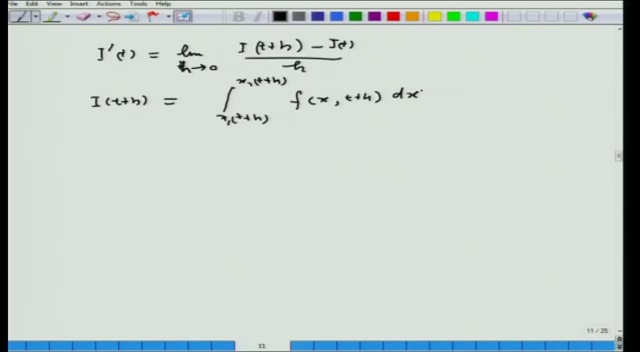 File View Insert Actions Tools Help
I'(t) = lim h→0 I(t+h) - I(t) / h
I(t+h) = ∫ x₁(t+h) x₂(t+h) f(x, t+h) dx
11 / 25
11